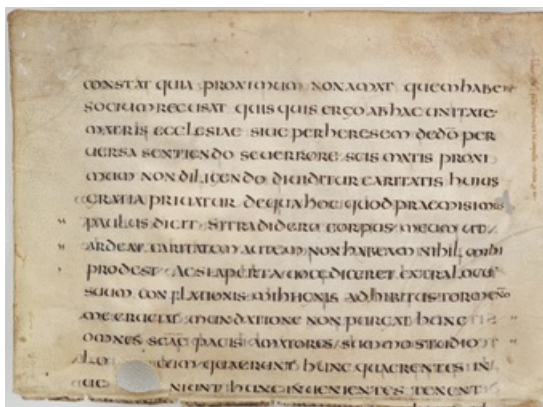 constat quia proximum non amat quem habere
socium recusat quis quis ergo ab hac unitate
matris ecclesiae siue per heresem de dō per
uersa sentiendo seu errore scismatis proxi
mum non diligendo diuiditur caritatis huius
gratia priuatur de qua hoc quod praemisimus
paulus dicit si tradidero corpus meum ut
ardeat caritatem autem non habeam nihil mihi
prodest ac si aperta uoce diceret extra locum
suum conflationis mihi ignis adhibitus tormen
me cruciat mundatione non purgat hunc
omnes scāe pacis amatores summo studio
quaerunt hunc quaerentes in
ueniunt hunc inuenientes tenent